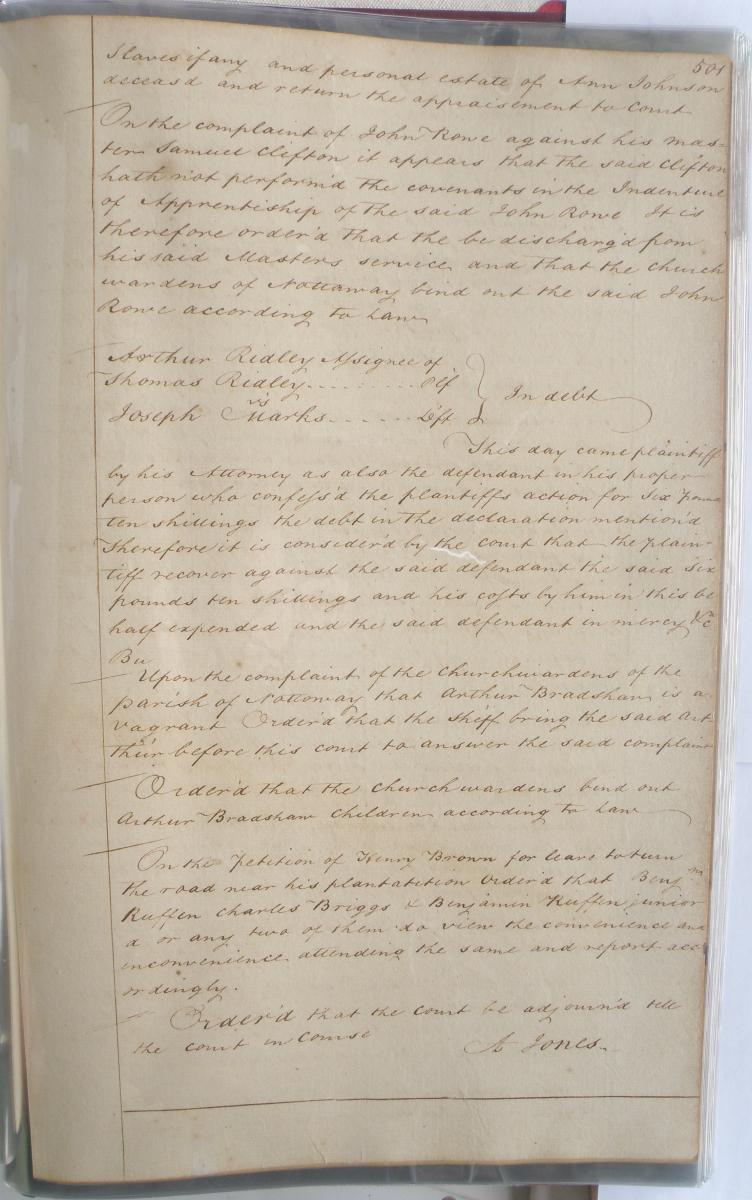 501
Slaves if any and personal estate of Ann Johnson
deceas'd and return the appraisement to Court
On the complaint of John Rowe against his mas=
ter Samuel Clifton it appears that the said Clifton
hath not perform'd the covenants in the Indenture
of Apprentiship of the said John Rowe It is
therefore order'd that the be discharg'd from
his said Masters service and that the church
wardens of Nottaway bind out the said John
Rowe according to Law
Arthur Ridley Assignee of
Thomas Ridley......... Plf
vs
In debt
Joseph Marks...... Dft
This day came plaintiff
by his Attorney as also the defendant in his proper
person who confess'd the plantiffs action for Six pounds
ten shillings the debt in the declaration mention'd
Therefore it is consider'd by the court that the plain-
tiff recover against the said defendant the said Six
pounds ten shillings and his costs by him in this be
half expended and the said defendant in mercy &c
Bu
Upon the complaint of the Churchwardens of the
parish of Nottoway that Arthur Bradshaw is a
vagrant Order'd that the Sheff bring the said Art
thur before this court to answer the said complaint
Order'd that the Churchwardens bind out
Arthur Bradshaw Children according to Law
On the Petition of Henry Brown for leave to turn
the road near his plantatition Order'd that Benjm
Ruffen Charles Briggs & Benjamin Ruffen junior
a or any two of them do view the convenience and
inconvenience attending the same and report acc
ordingly.
Order'd that the Court be adjourn'd till
the court in Course
A Jones